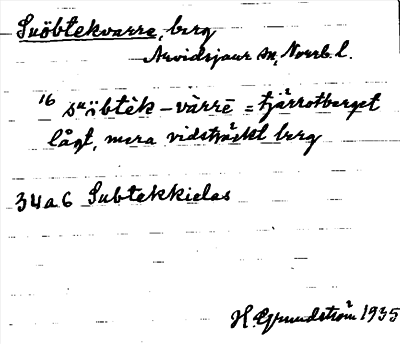 Suöbtekvarre, berg
Arvidsjaur sn, Norrb. l.
16 suöbtēk-vārrē = tjärrotberget
lågt, mera vidsträckt berg
34a6 Subtekkielas
H. Grundström 1935